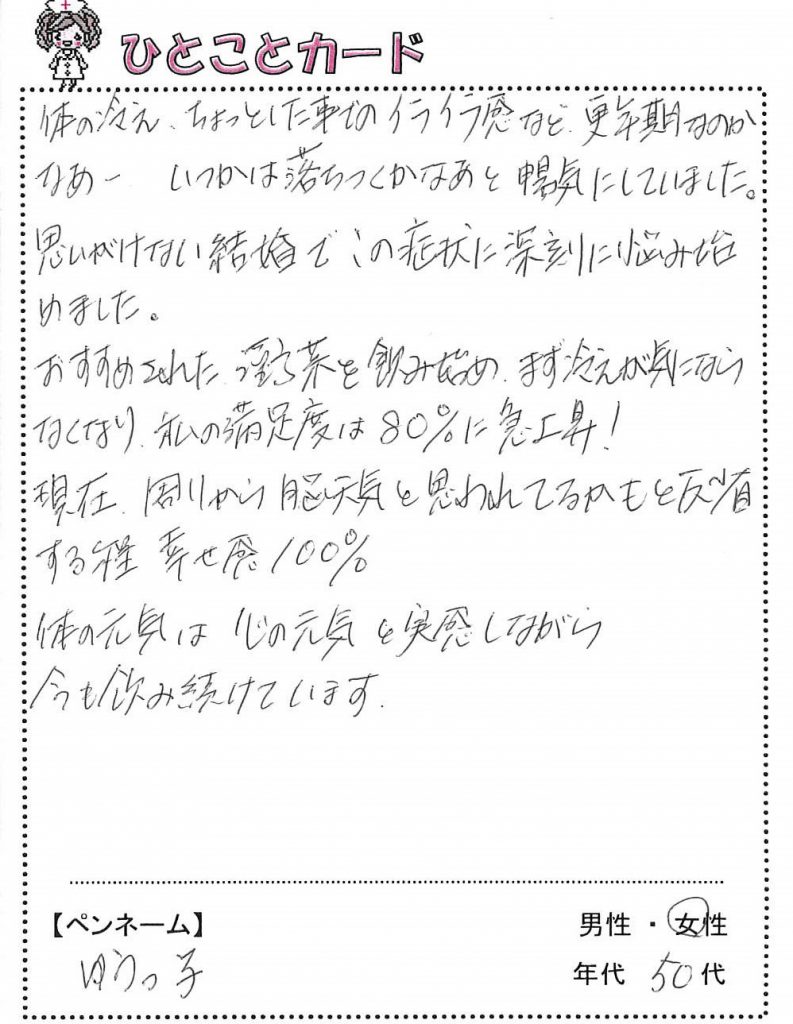 ひとことカード
体の冷え、ちょっとした事でのイライラ感など、更年期なのか
なあー いつかは落ちつくかなあと暢気にしていました。
思いがけない結婚でこの症状に深刻に悩み始
めました。
おすすめされた 漢方薬を飲み始め、まず冷えが気になら
なくなり、私の満足度は80%に急上昇!
現在、周りから脳天気と思われてるかもと反省
する程 幸せ感100%
体の元気は 心の元気 と実感しながら
今も飲み続けています.
【ペンネーム】
男性 ・ 女性
ゆうっ子
年代 50代